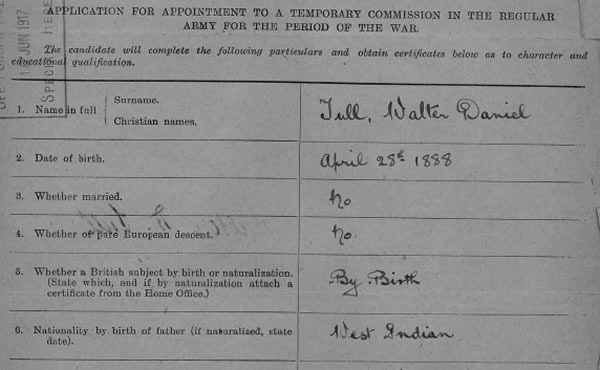 APPLICATION FOR APPOINTMENT TO A TEMPORARY COMMISSION IN THE REGULAR
ARMY FOR THE PERIOD OF THE WAR.
The candidate will complete the following particulars and obtain certificates below as to character and
educational qualification.
JUN 1917
1. Name in full { Surname. Christian names. Tull, Walter Daniel
2. Date of birth. April 28th 1888
3. Whether married. No
4. Whether of pure European descent. No.
5. Whether a British subject by birth or naturalization.
(State which, and if by naturalization attach a
certificate from the Home Office.) By Birth
6. Nationality by birth of father (if naturalized, state
date). West Indian